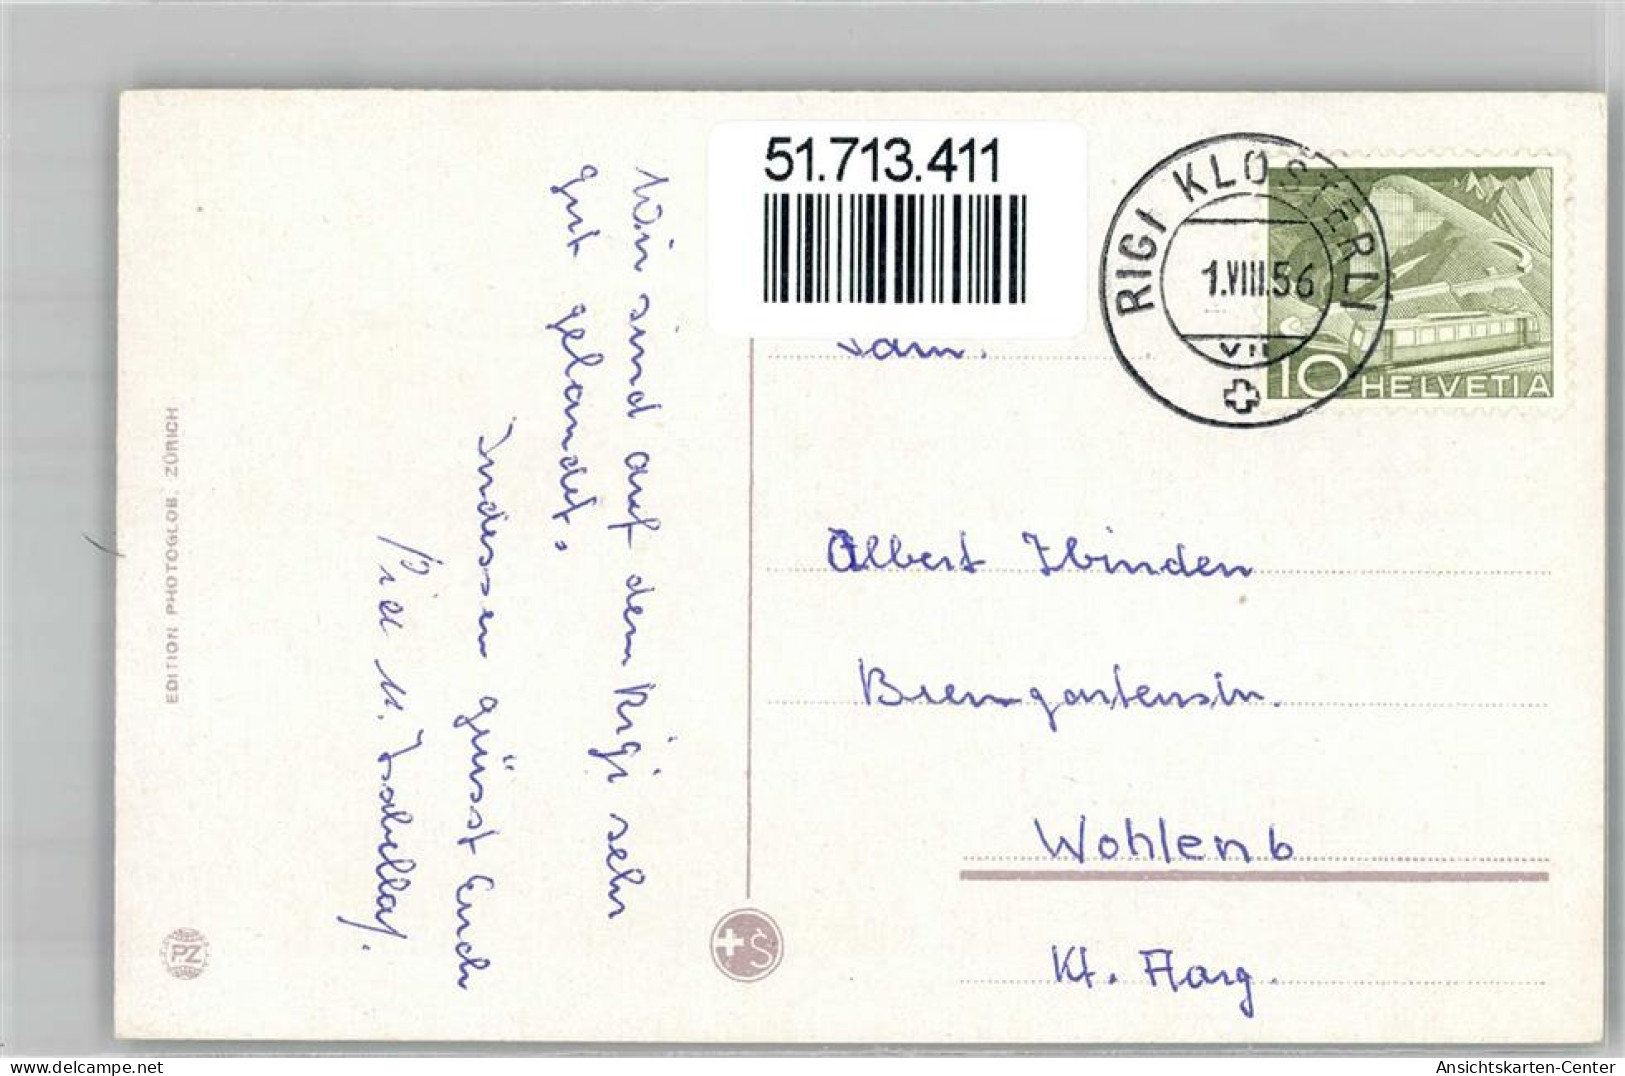 51.713.411
RIGI KLÖSTERLI
1.VIII.56
VII
10 HELVETIA
Wir sind auf dem Rigi sehr
gut gelandet.
Indessen grüsst Euch
M. Isabella.
Fam.
Albert Ibinden
Bremgartenstr.
Wohlen b
Kt. Aarg.
EDITION PHOTOGLOB, ZÜRICH
PZ
S
AnsichtsKarten-Center
delcampe.net